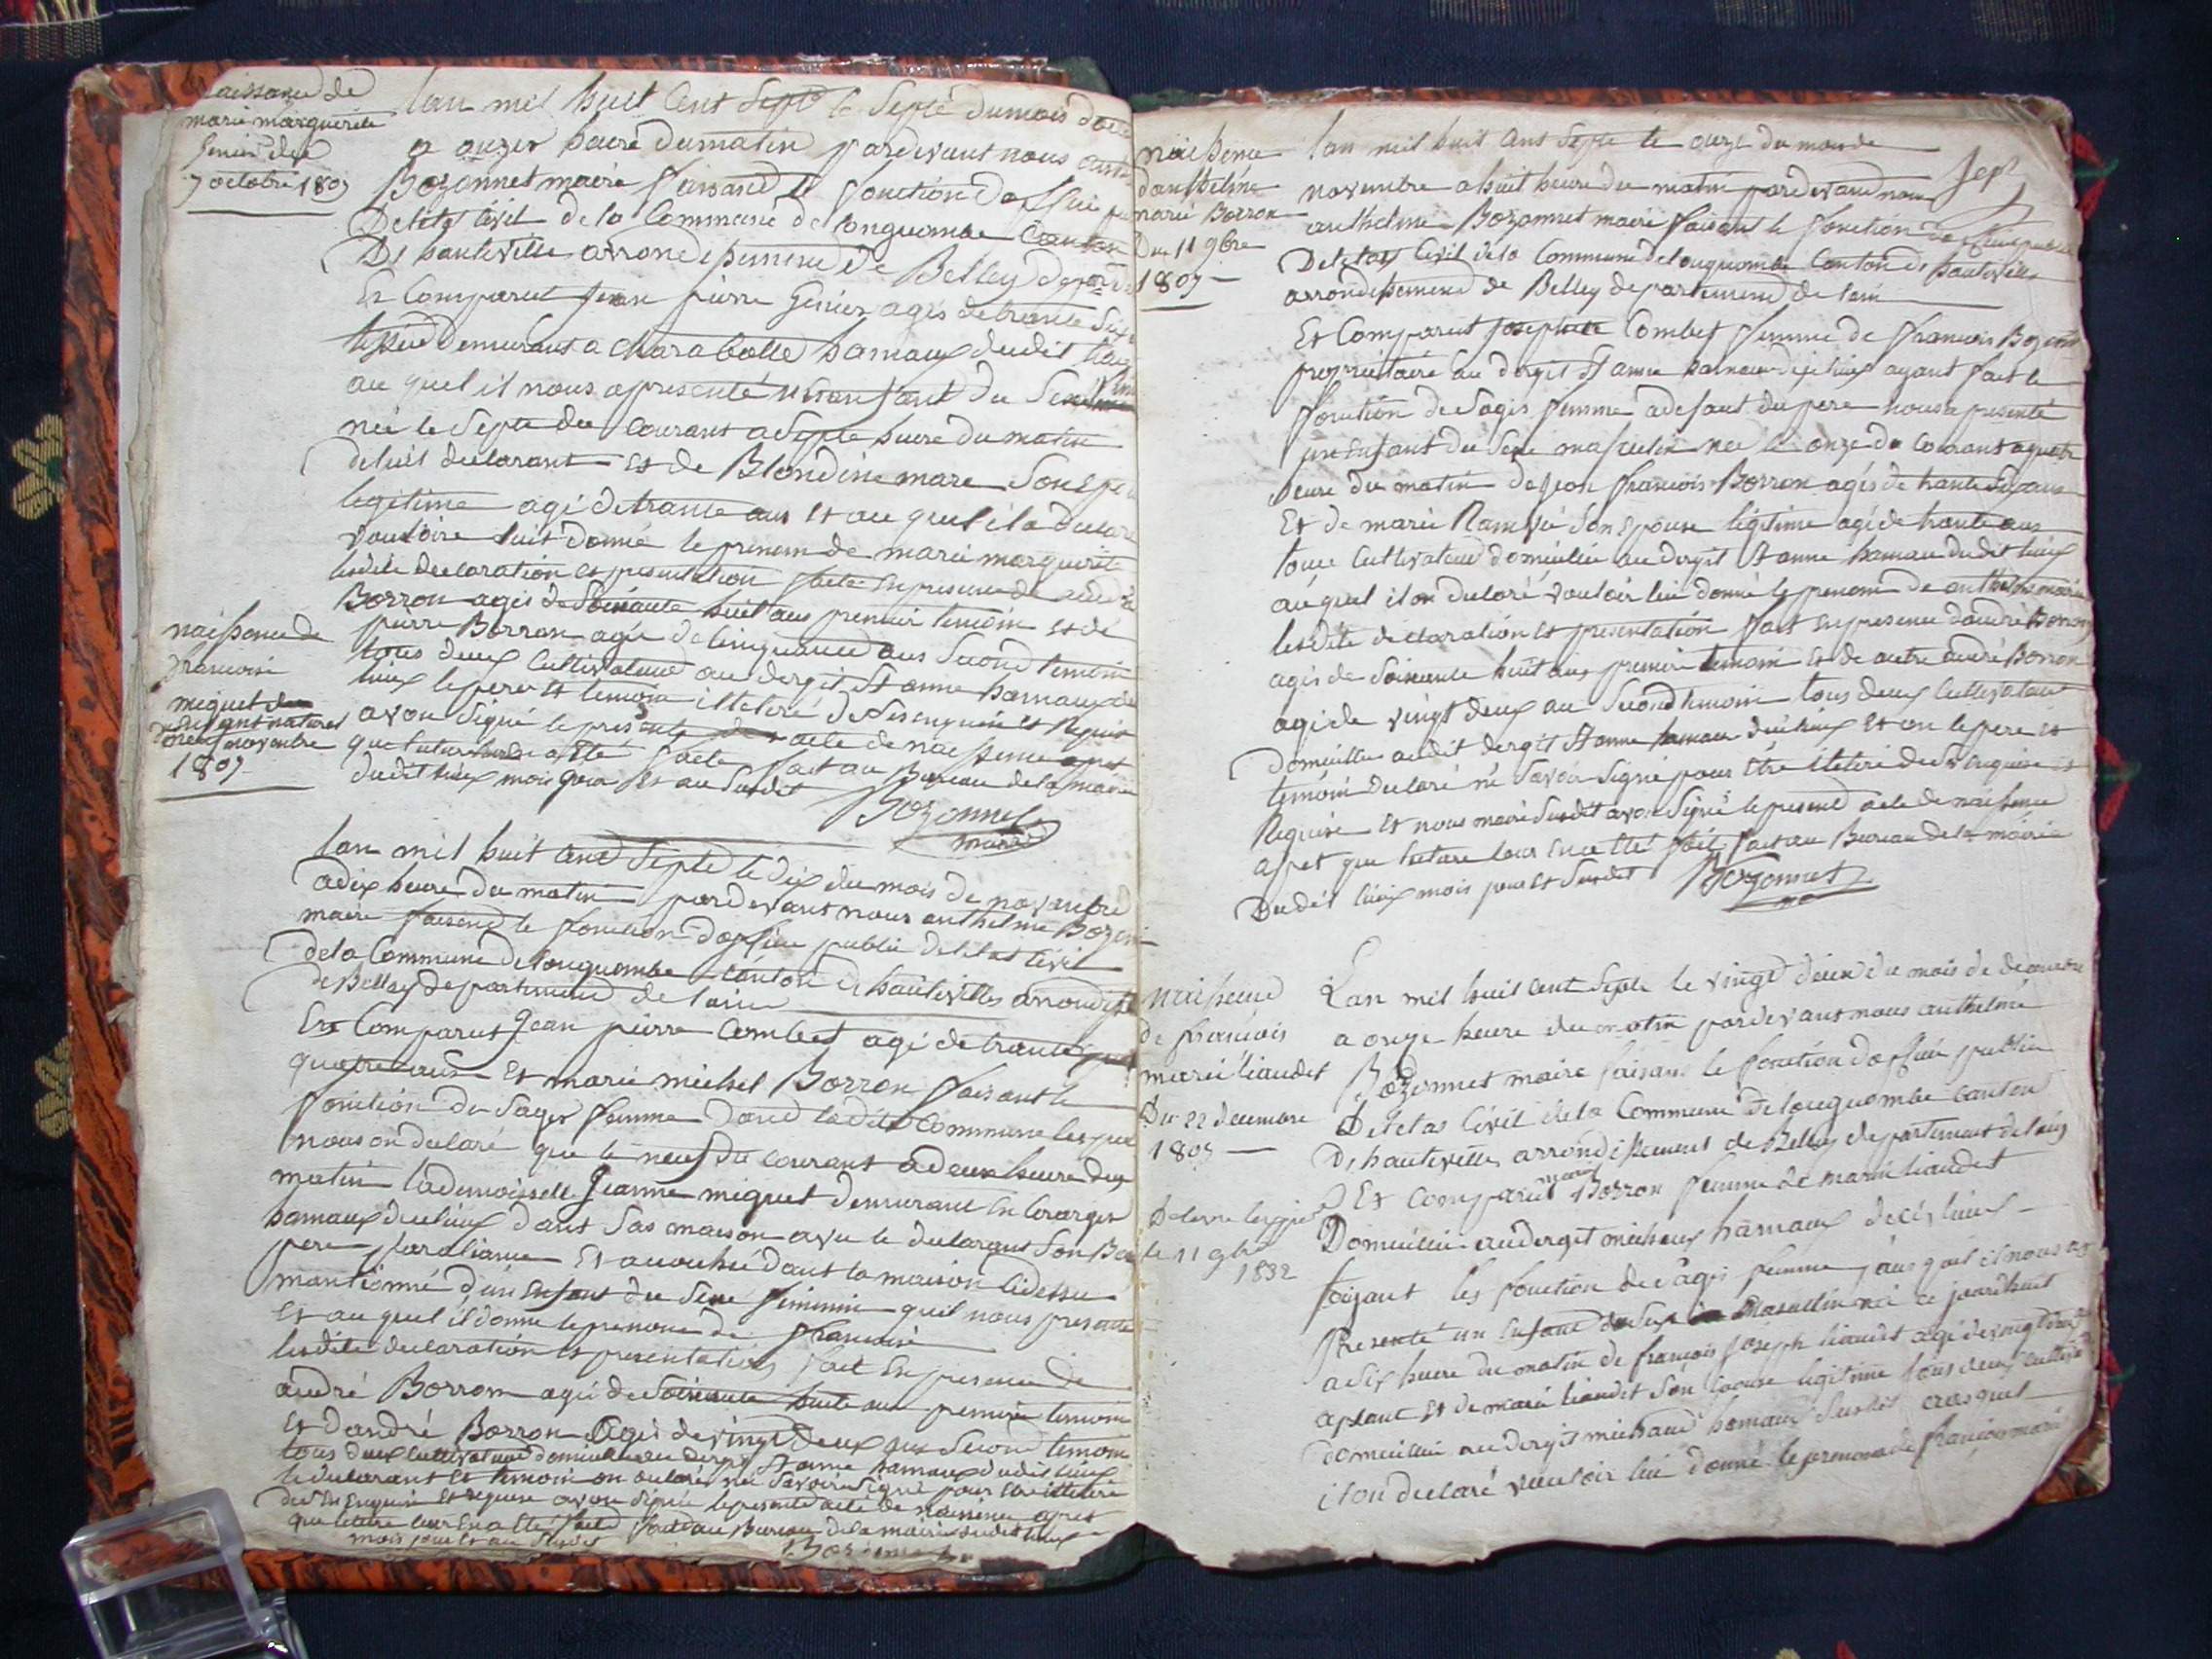 naissance de
marie marguerite
Genier du
7 octobre 1807
lan mil huit Cent Septe le Septe du mois d
a onzer heure du matin pardevant nous
Bozonnet maire faisand le fonction
De letat Civil de la Commune de longuombe Canton
De hauteville arrondissemend de Belley
Et Comparut jean pierre Genier agés de trante
demurant a Charabolle hamaux dudit
au quel il nous a presenté un enfant du Sexe
née le Septe du Courant a Septe heure du matin
de luit declarant Et de Blondine mare Son
legitime agé de trante ans Et au quel il a
vouloire luit donné le prenom de marie marguerite
lesdite declaration Et presentation faite En presence de
Borron agés de Soixante huit ans premier temoin Et de
pierre Borron agée de Cinquand ans Second temoin
tous deux Cultivateur au dergit St anne hamaux de
lieux le pere Et temoin illeteré de Ses enquerie Et Requis
avon Signé le present acte de naissence apret
que lecture a Eté faite fait au Bureau de la mairie
dudit lieux mois jour Et an Susdit
Bozonnet
maire
naissence de
francoise
miguet
enfant naturel
novembre
1807
lan mil huit Cend Septe le dix du mois de novembre
a dix heure du matin pardevant nous anthelme
maire faisend le fonction d'officie public de letat Civil
de la Commune de longuombe Canton de hauteville
de Belley departemend de lain
Et Comparut Jean pierre Combet agé de trante
quatre ans Et marie michel Borron faisant le
fonction de Sager femme dand ladite Commune
nous on declaré que le neuf du Courant a deux heure du
matin lademoisselle Jeanne miguet demurant En Cerarger
hamaux du lieux dans Sas maison avec le declarant Son
pere par aliance Et acouchée dans la maison Cidessu
mantionné d'un Enfant du Sexe feminin quil nous presente
Et au quel il donne le prenom de francoise
lesdite declaration Et presentation fait En presence de
andré Borron agé de Soixante huite ans premier temoin
Et dandré Borron agés de vingt deux ans Second temoin
tous deux Cultivateur domicilie au dergit St anne hamaux dudit lieux
le declarant Et temoin on declaré ne Savoir Signé pour Etre illeteré
de Enquerie Et requise avon Signée le presente acte de naissence apret
que lecture leur En a Eté faite fait au Bureau de la mairie dudit lieux
mois jour Et an Susdit
Bozonnet
naissence
danthelme
marie Borron
Du 11 9bre
1807
Sept
lan mil huit Cent Septe le onze du mois de
novembre a huit heure du matin pardevand nous
anthelme Bozonnet maire faisant le fonction
De letat Civil de la Commune de longuombe Canton de hauteville
arrondissemend de Belley departemend de lain
Et Comparut Combet femme de francois
proprietaire au dergit St anne hamau du lieux ayant fait le
fonction de Sages femme a defaut du pere nous a presenté
un Enfant du Sexe masculin née le onze du Courant a quatre
heure du matin de jean francois Borron agés de trante
Et de marie Son Epouse legitime agé de trante ans
tous Cultivateur domicilie au dergit St anne hamau dudit lieux
au quel il on declaré vouloir lui donné le prenom de anthelme marie
lesdite declaration Et presentation fait En presence dandré Borron
agés de Soixante huit ans premier temoin Et de autre andré Borron
agé de vingt deux an Second temoin tous deux Cultivateur
domicillie audit dergit St anne hamau du lieux Et on le pere Et
temoin declaré né Savoir Signé pour Etre illeteré de Enquerie Et
Requise Et nous maire Susdit avon Signé le presend acte de naissence
apret que lecture leur En a Eté fait fait au Bureau de la mairie
Dudit lieux mois jour Et Susdit Bozonnet
naissence
de francois
marie liaudet
Du 22 decembre
1807
le 11 9bre
1832
Lan mil huit Cent Septe le vingt deux du mois de decembre
a onze heure du matin pardevant nous anthelme
Bozonnet maire faisant le fonction dofficie public
De letat Civil de la Commune de longuombe Canton
De hauteville arrondissement de Belley departement de lain
Et Comparut marie Borron femme de marin liaudet
Domicilie au dergit michaux hamaux de Ces lieux
faizant les fonction de Sages femme auquel il nous a
Presenté un Enfant du Sexe Masculin né ce jourdhuit
a Six heure du matin de francois joseph liaudet agé de vingt
Et de marie liaudet Son Epouse legitime tous deux
domicillie au dergit michaud hamaux Susdit auquel
il on declaré vouloir lui donné le prenom de francois marie